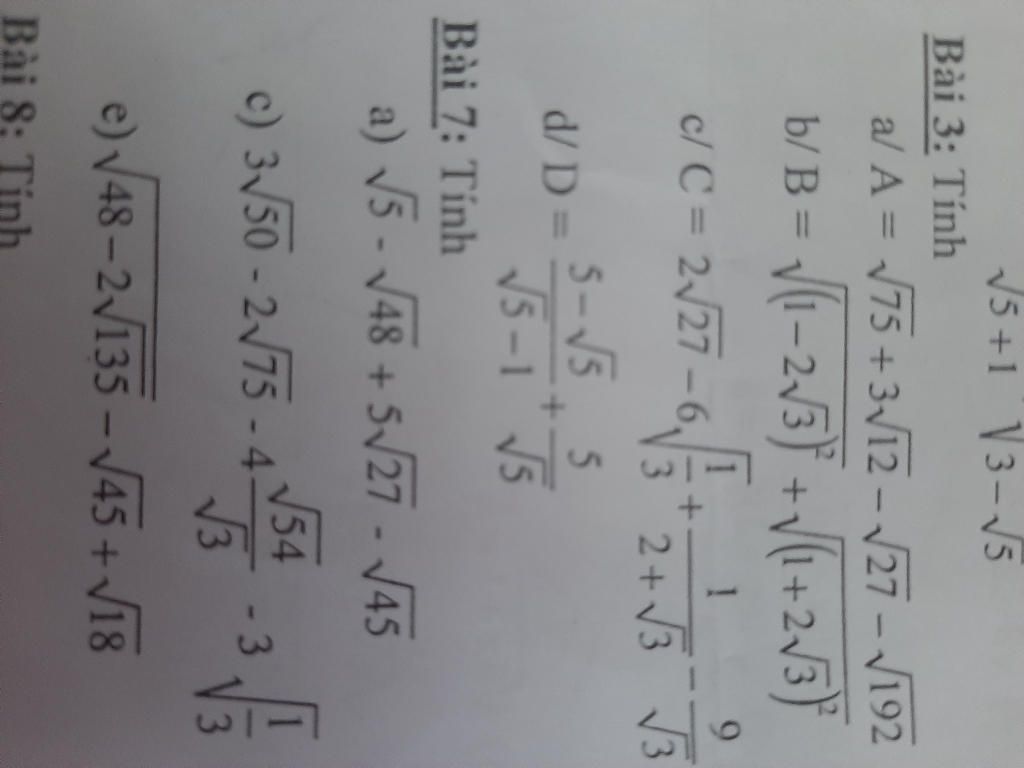 √5+1 √3−√5
Bài 3: Tính
a/ A = √75 + 3√12 − √27 − √192
b/ B = √(1−2√3)² + √(1+2√3)²
c/ C = 2√27 − 6√(1/3) + 1/(2+√3) − 9/√3
d/ D = (5−√5)/(√5−1) + 5/√5
Bài 7: Tính
a) √5 - √48 + 5√27 - √45
c) 3√50 - 2√75 - 4 √54/√3 - 3 √(1/3)
e) √(48−2√135) − √45 + √18
Bài 8: Tính